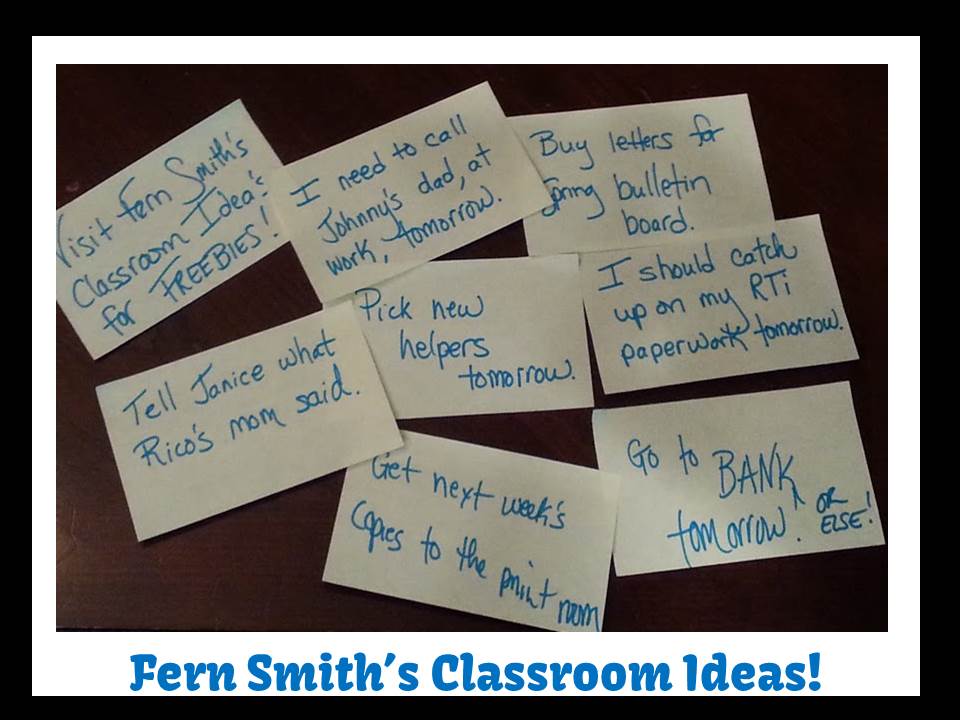 Visit Fern Smith's
Classroom Idea's
for FREEBIES!
I need to call
Johnny's dad, at
work, tomorrow.
Buy letters for
Spring bulletin
board.
I should catch
up on my RTi
paperwork tomorrow.
Pick new
helpers
tomorrow.
Tell Janice what
Rico's mom said.
Get next week's
copies to the print room
Go to BANK
tomorrow. OR
ELSE!
Fern Smith's Classroom Ideas!